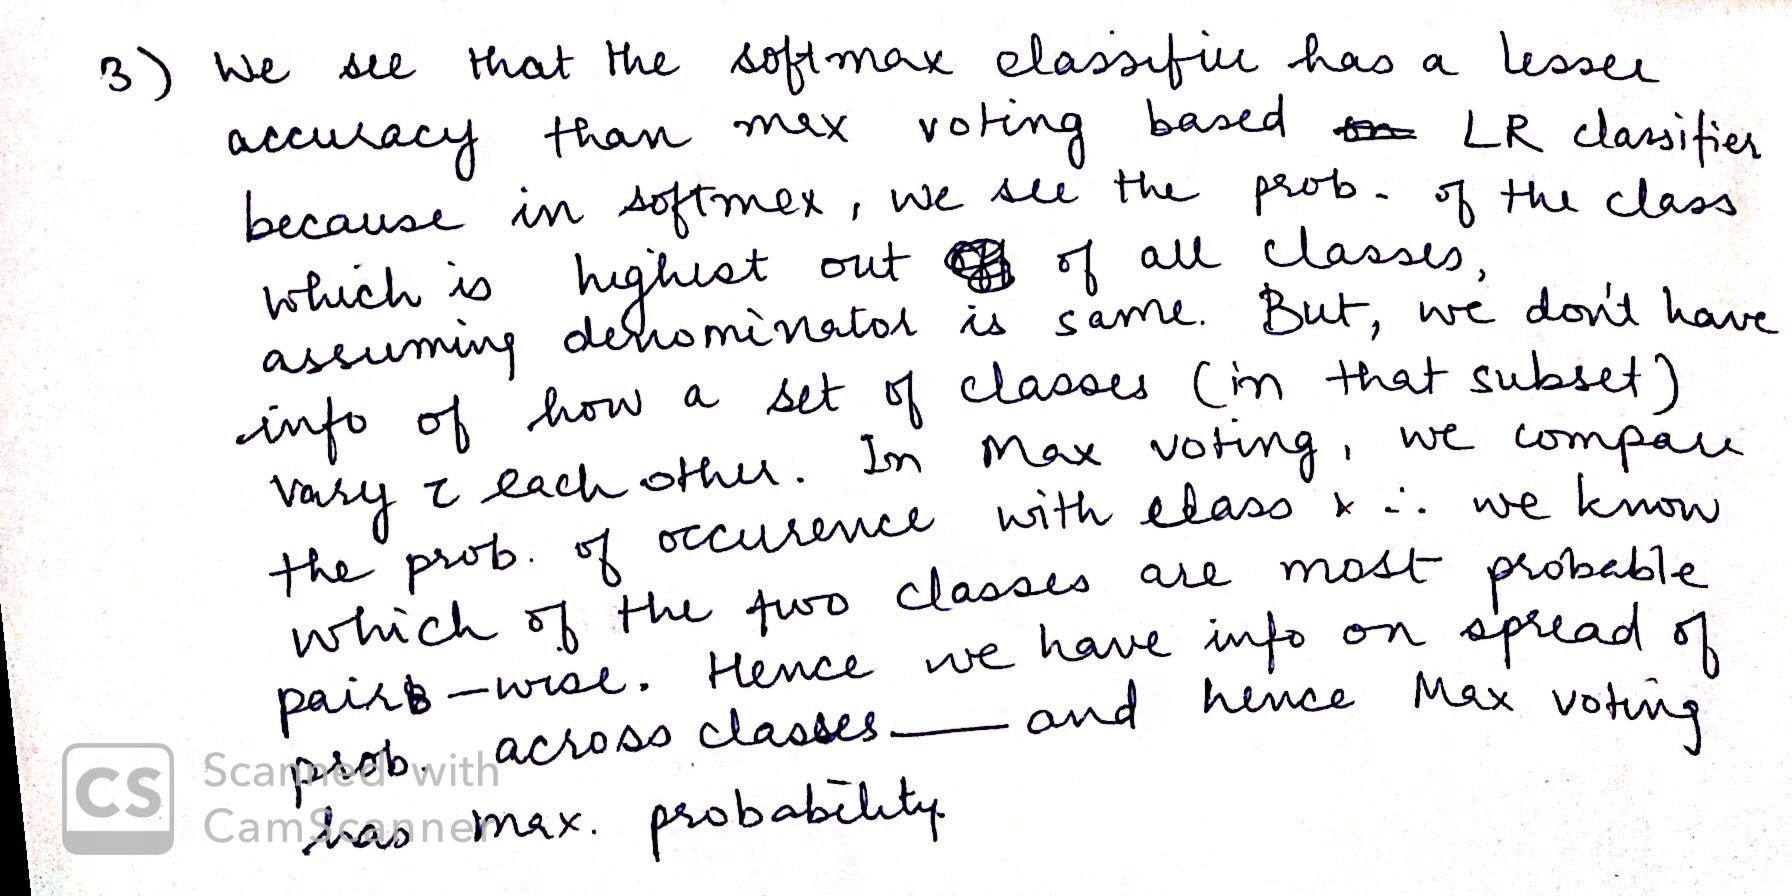 3) We see that the softmax classifier has a lesser
accuracy than max voting based LR classifier
because in softmax, we see the prob. of the class
which is highest out of all classes,
assuming denominator is same. But, we don't have
info of how a set of classes (in that subset)
vary c̄ each other. In Max voting, we compare
the prob. of occurence with class & ∴ we know
which of the two classes are most probable
pair-wise. Hence we have info on spread of
prob. across classes — and hence Max voting
has max. probability
CS Scanned with
CamScanner